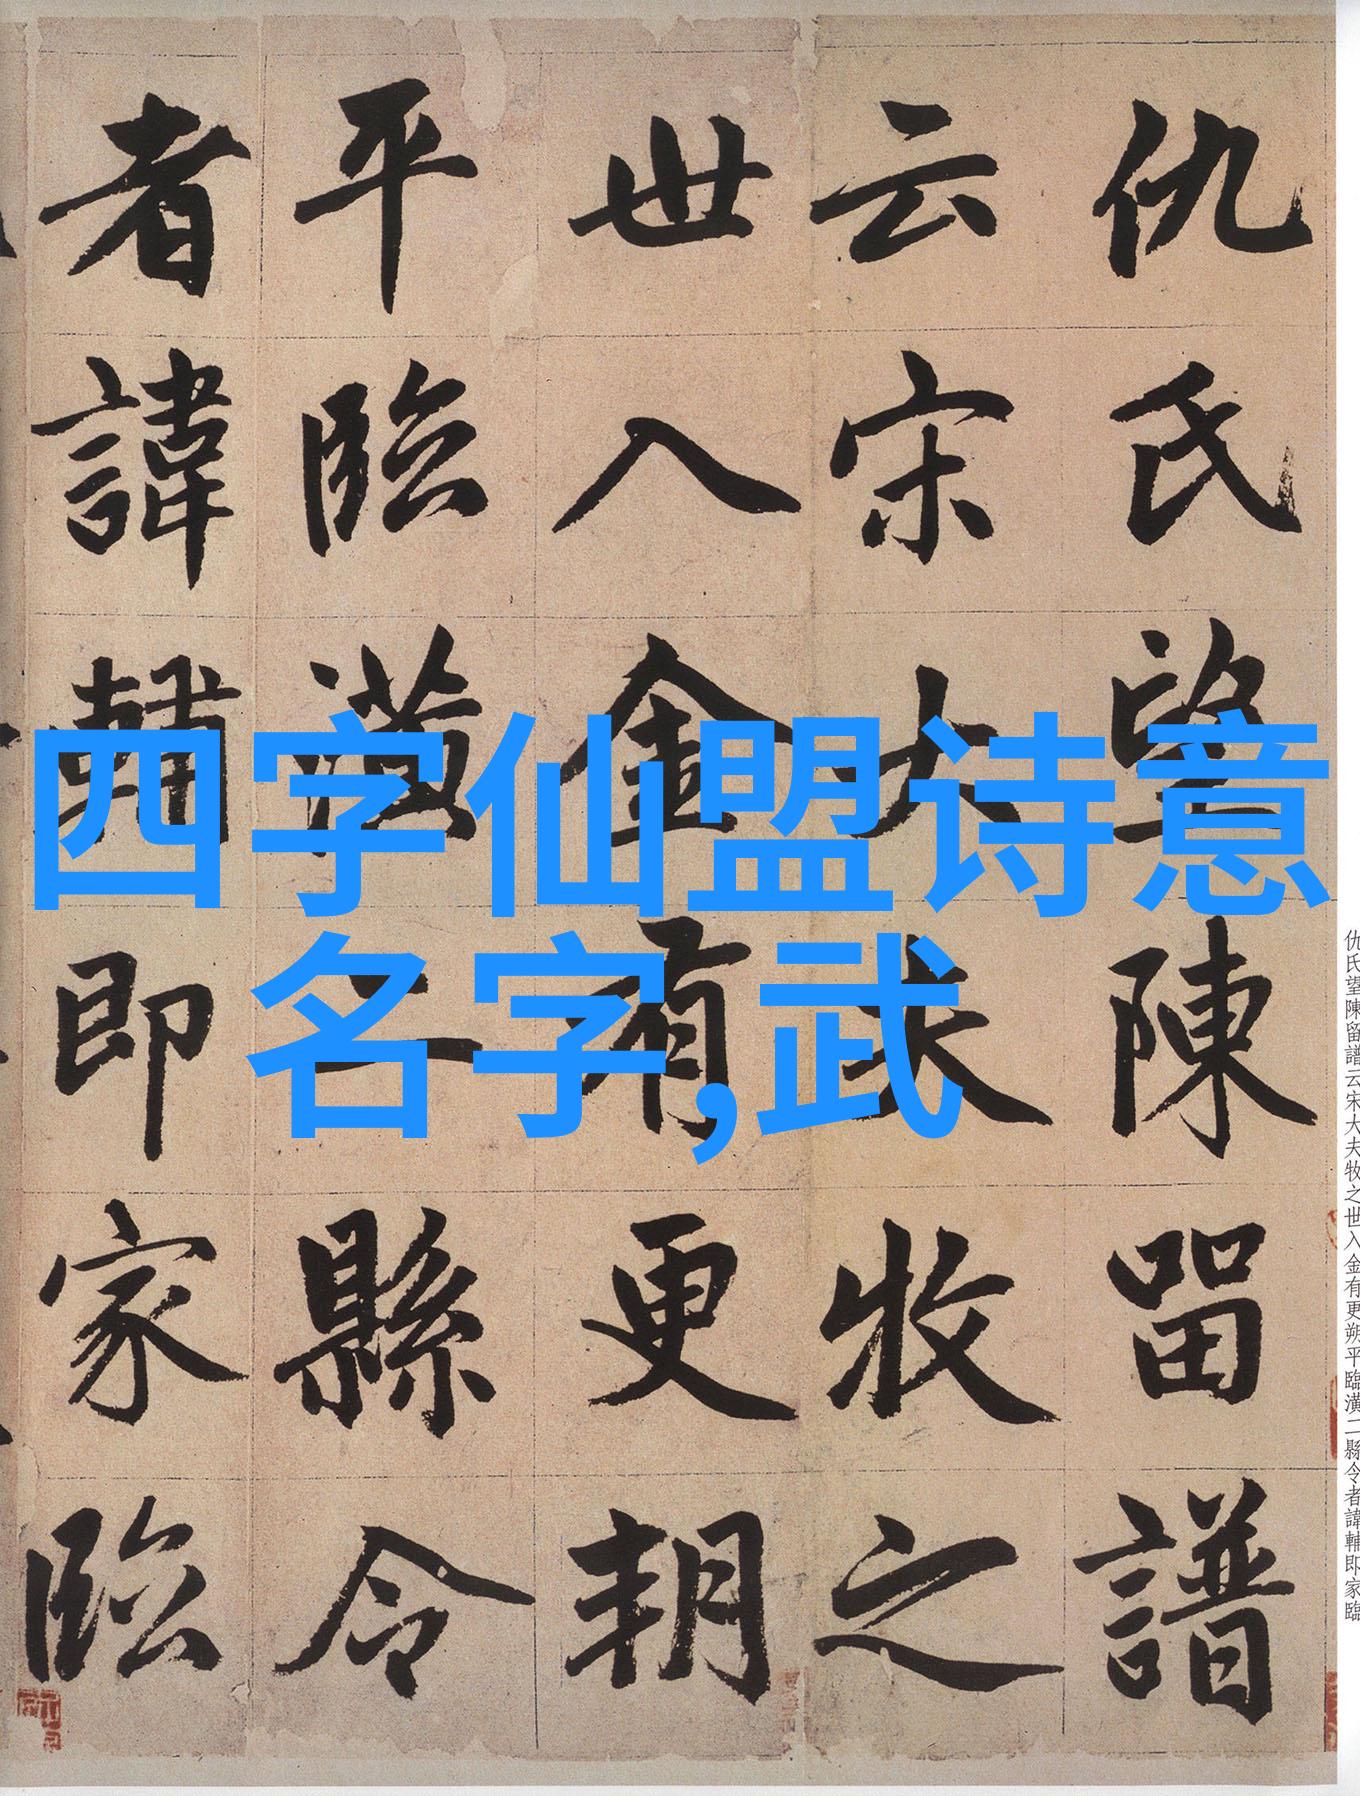 四字仙盟诗意
名字,武
仇氏望陳留譜
云宋大夫牧之
世入金有更朔
平臨潢二縣令
者諱輔即家臨
仇氏望陳留譜云宋大夫牧之世入金有更朔平臨潢二縣令者諱輔即家臨